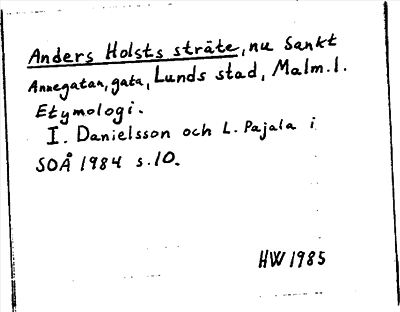 Anders Holsts sträte, nu Sankt
Annegatan, gata, Lunds stad, Malm.l.
Etymologi.
I. Danielsson och L. Pajala i
SOÅ 1984 s.10.
HW 1985